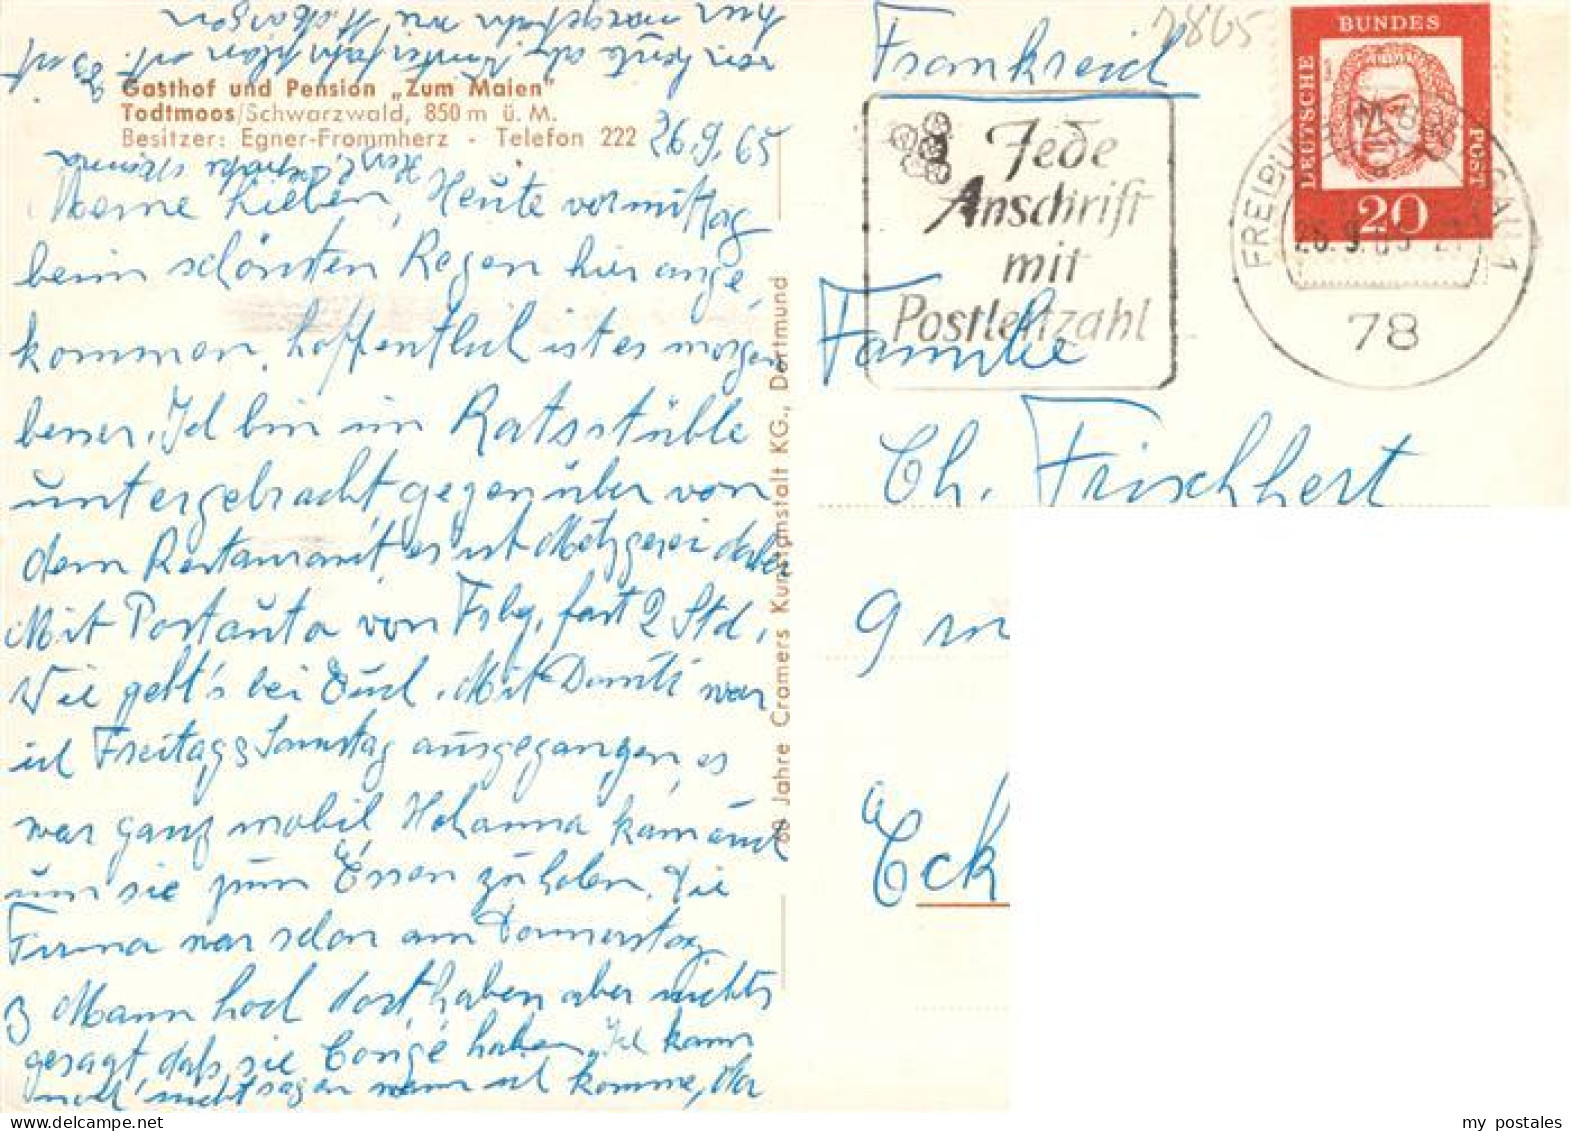 Gasthof und Pension „Zum Maien"
Todtmoos/Schwarzwald, 850 m ü. M.
Besitzer: Egner-Frommherz - Telefon 222
26.9.65
Meine Lieben, Heute vormittag
beim schönsten Regen hier ange,
kommen, hoffentlich ist es morgen
besser. Ich bin im Ratsstüble
untergebracht gegenüber von
dem Restaurant, es ist Metzgerei dabei
Mit Postauto von Frbg, fast 2 Std.
Wie geht's bei Euch. Mit war
ich Freitag & Samstag ausgegangen, es
war ganz mobil, Hohanna kam auch
um sie zum Essen zu holen. Die
Firma war schon am Donnerstag
3 Mann hoch dort, haben aber nichts
gesagt, daß sie Congé haben. Ich kann
noch nicht sagen wann ich komme, da
von heute ab Winterfahrplan ist.
68 Jahre Cramers Kunstanstalt KG., Dortmund
7865
Frankreich
Jede
Anschrift
mit
Postleitzahl
DEUTSCHE
BUNDES
POST
20
FREIBURG
26.9.65
78
1
Familie
Ch. Frischhert
9
Eck
my postales